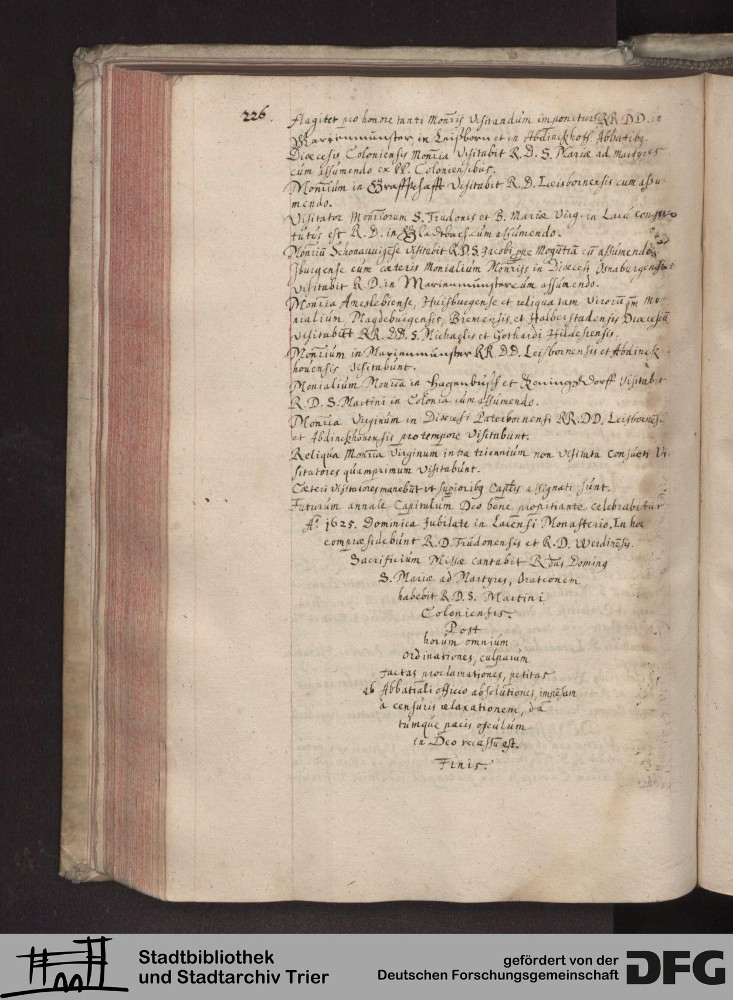 226.
flagitet pro honore tanti Monrij Visitandum imponitur RR. DD. in
Marienmünster in Leisborn et in Abdinckhoff Abbatibq.
Dioecesis Coloniensis Monria Visitabit R. D. S. Mariae ad Martyres
cum assumendo ex PP. Coloniensibus.
Monrium in Graffschafft Visitabit R. D. Leisbornensis cum assu-
mendo.
Visitator Monriorum S. Trudonis et B. Mariae Virg. in Lacu consti-
tutus est R. D. in Gladtbach cum assumendo.
Monriu Schonauuigense visitabit R.D. S. Jacobi prope Mogutia cu assumendo
Jburgense cum caeteris Monialium Monrijs in Dioecesi Osnaburgensi
Visitabit R. D. in Marienmunster cum assumendo.
Monria Ameslebiense, Huisburgense et reliqua tam Virorum qm Mo-
nialium, Magdeburgensis, Bremensis et Halberstadensis Dioecesiu
Visitabut RR. DD. S. Michaelis et Gothardi Hildesiensis.
Monrium in Marienmunster RR. DD. Leisbornensis et Abdinck-
houensis Visitabunt.
Monialium Monria in Hagenbusch et Keningsdorff Visitabit
R. D. S. Martini in Colonia cum assumendo.
Monria Virginum in Dioecesi Paterbornensi RR. DD. Leisbornes.
et Abdinckhouensis pro tempore Visitabunt.
Reliqua Monria Virginum intra triennium non Visitata consueti Vi-
sitatores quamprimum Visitabunt.
Caeteri Visitatores manebut vt superioribq Captis assignati sunt.
Futurum annale Capitulum Deo bene propitiante celebrabitur
Ao 1625. Dominica Jubilate in Lacensi Monasterio. In hoc
compraesidebunt R. D. Trudonensis et R. D. Werdinesis.
Sacrificium Missae cantabit Rdus Dominq
S. Mariae ad Martyres, Orationem
habebit R. D. S. Martini
Coloniensis.
Post
horum omnium
ordinationes, culparum
factas proclamationes, petitas
ab Abbatiali officio absolutiones, impesam
a censuris relaxationem, da
tumque pacis osculum
in Deo recessu est.
Finis.
Stadtbibliothek
und Stadtarchiv Trier
gefördert von der
Deutschen Forschungsgemeinschaft
DFG